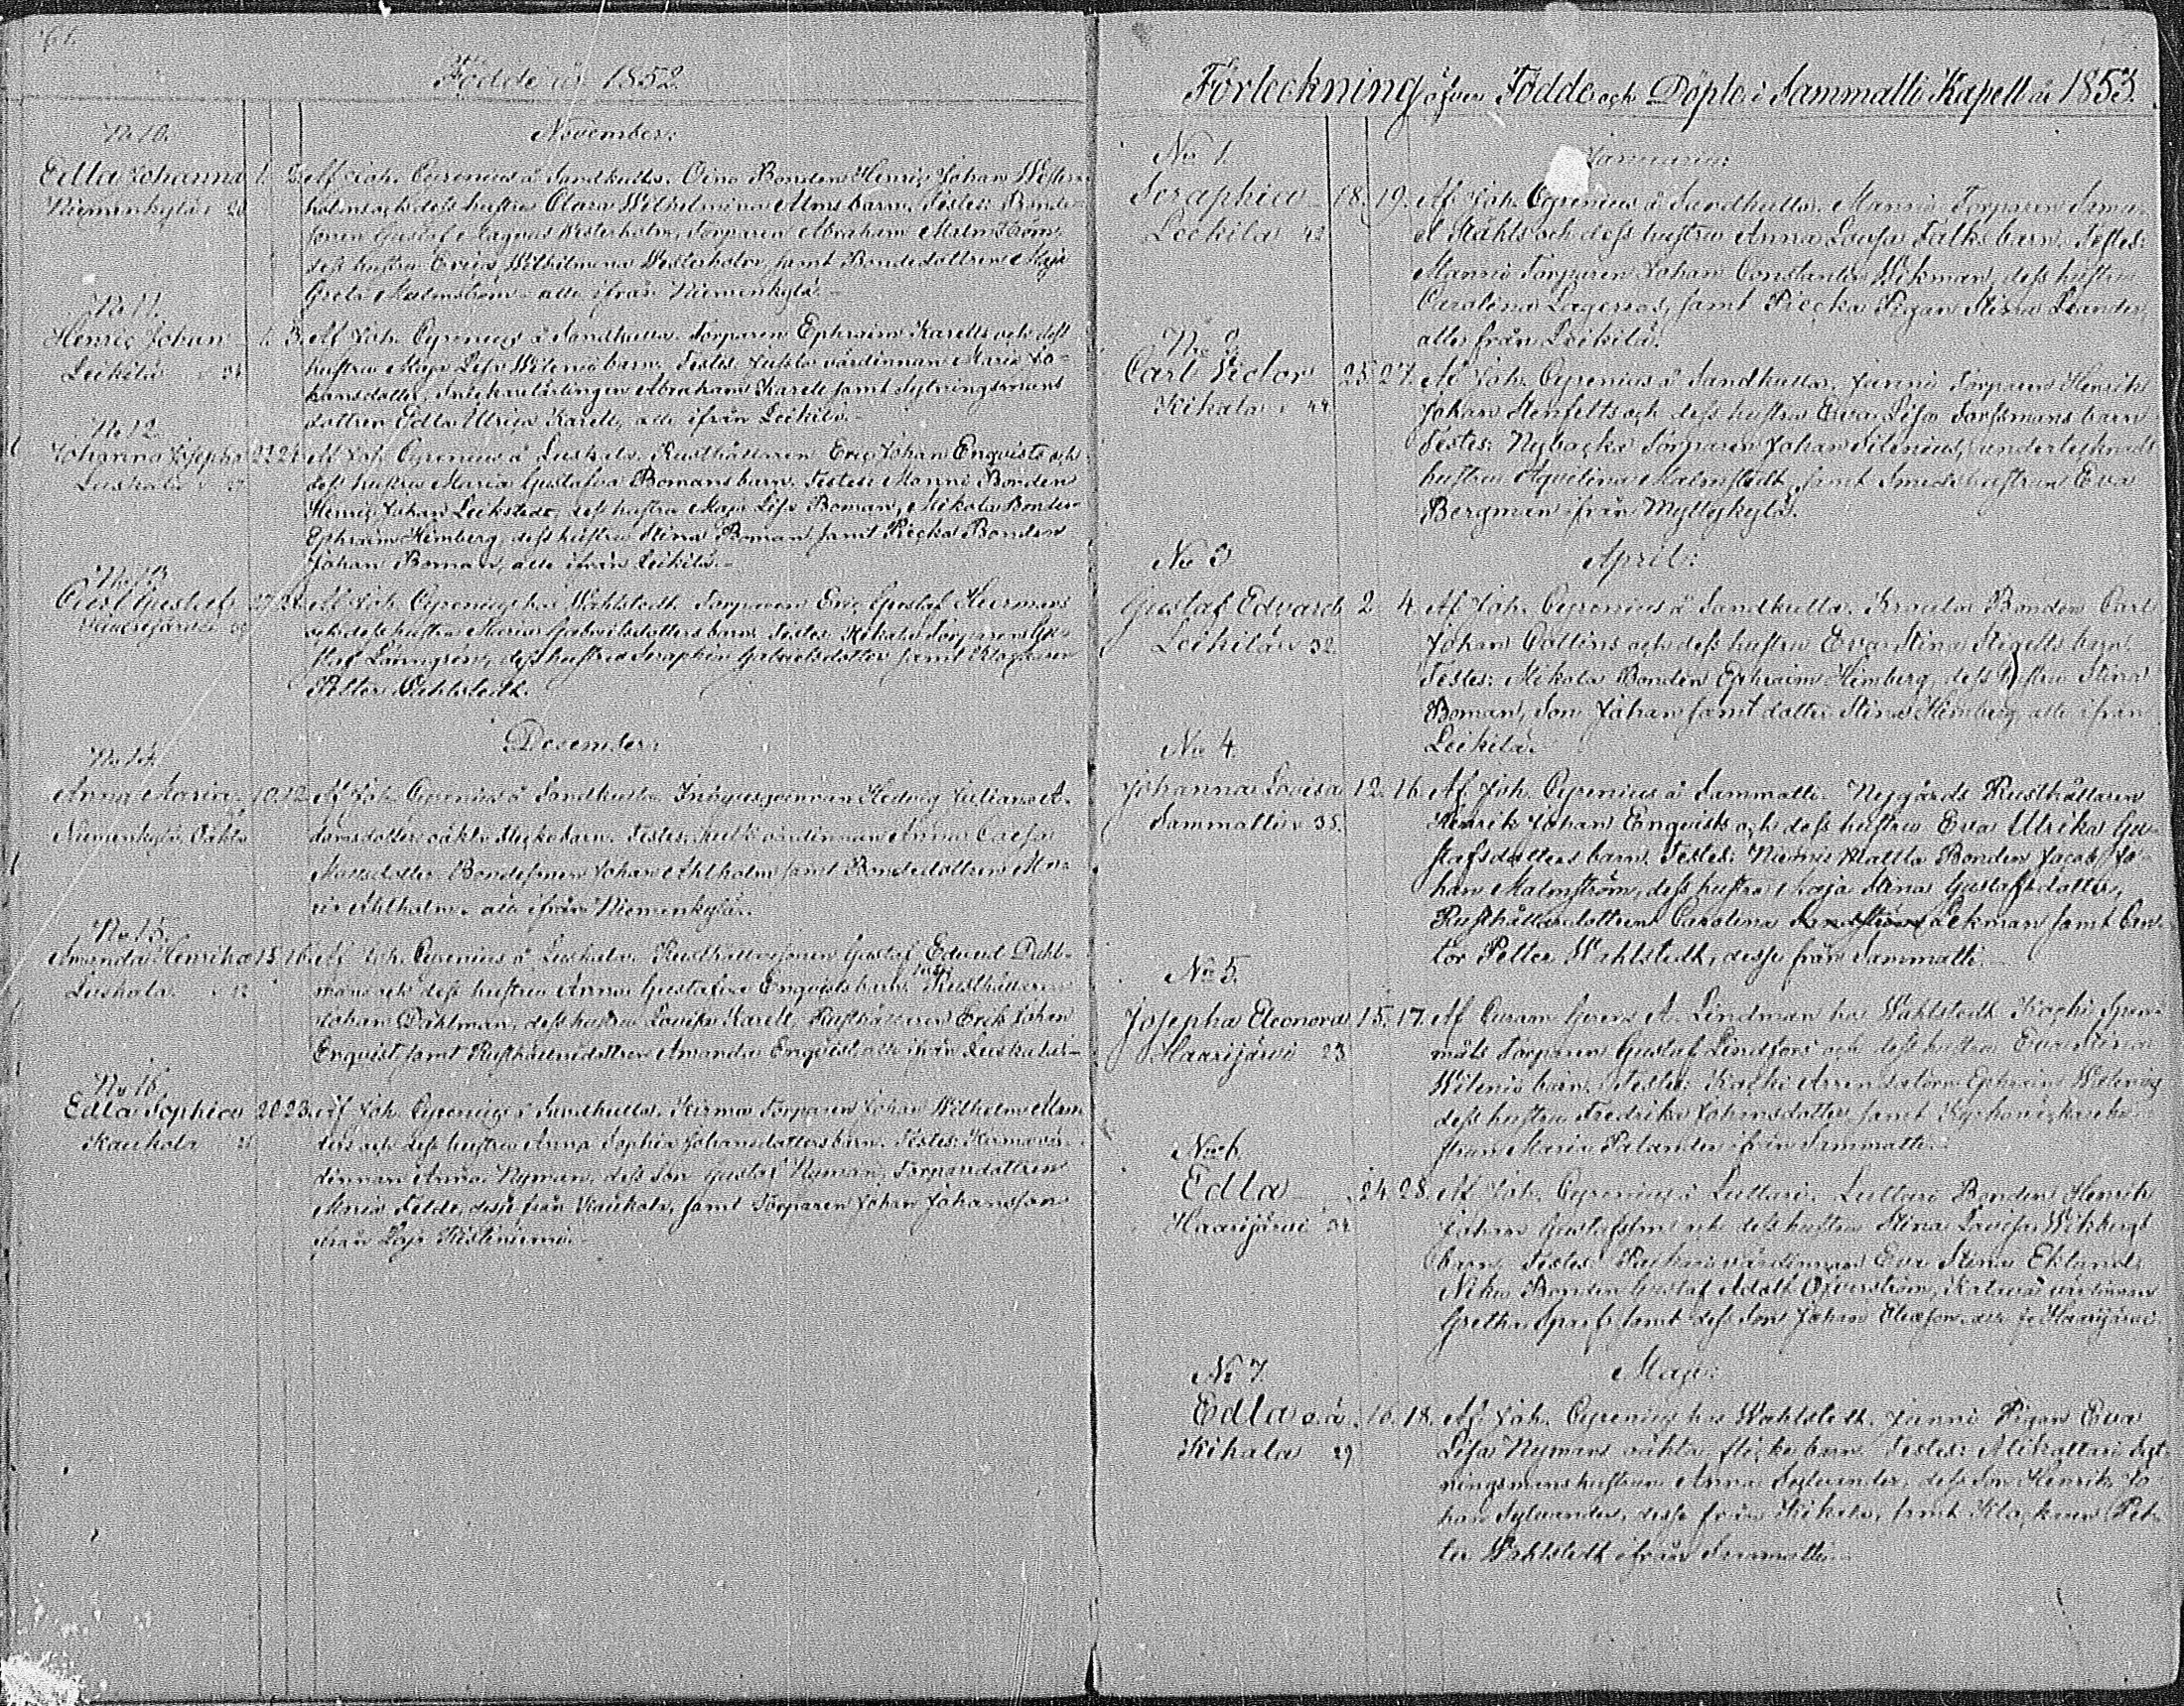 61.
Födde år 1852
No 10.
November:
Edla Johanna 1. 2. Af Joh. Cyrenius å Sandkulla. Oino Bonden Henric Johan Wester-
Niemenkylä holms och dess hustru Clara Wilhelmina Alms barn. Testes: Bonde
sonen Gustaf Magnus Westerholm, Torparen Abraham Malmström,
dess hustru Wilhelmina Westerholm, samt Bondedottren Maja
Greta Malmström alle ifrån Niemenkylä.
No 11.
Henric Johan 1. 3. Af Joh. Cyrenius å Sandkulla. Torparen Ephraim Karells och dess
Leikilä hustru Maja Lisa Wilenii barn. Testes: värdinnan Maria Jo-
hansdotter, Abraham Karell samt Sytningsmans
dottren Edla Ulrica Karell, alle ifrån Leikilä.
No 12.
Johanna Josepha Af Joh. Cyrenius å Luskala. Rusthållaren Eric Johan Enqvists och
Luskala dess hustru Maria Gustafva Bomans barn. Testes: Monni Bonden
Henric Johan Leikstedt, dess hustru Maja Lisa Boman, Mikola Bonden
Ephraim Himberg, dess hustru Stina Boman samt Piecka Bonden
Johan Boman, alle ifrån Leikilä.
No 13.
Carl Gustaf 27. Af Joh. Cyrenius hos Wahlstedt. Torparen Eric Gustaf Heermans
och dess hustru Maria Gabrielsdotters barn. Testes: Kikala Torparen Gu-
staf Lönngren, dess hustru Seraphia Gabrielsdotter samt Klockaren
Petter Wahlstedt.
December:
No 14.
Anna Maria 10. 12. Af Joh. Cyrenius å Sandkulla. Hedvig Juliana A-
Niemenkylä Oäkta damsdotter oäkta flickebarn. Testes: värdinnan Anna Caisa
Mattsdotter, Bondesonen Johan Ahlholm samt Bondedottren Ma-
ria Ahlholm, alle ifrån Niemenkylä.
No 15.
Amanda Henrika 15. 16. Af Joh. Cyrenius å Luskala. Rusthållaresonen Gustaf Edvard Dahl-
Luskala mans och dess hustru Anna Gustafva Enqvists barn. Testes: Rusthållaren
Johan Dahlman, dess hustru Lovisa Karell, Rusthållaren Erik Johan
Enqvist samt Rusthållaredottren Amanda Enqvist, alle ifrån Luskala.
No 16.
Edla Sophia 20. 23. Af Joh. Cyrenius å Sandkulla. Kirmo Torparen Johan Wilhelm
Kaukola och dess hustru Anna Sophia Johansdotters barn. Testes: Kirmo vär-
dinnan Anna Nyman, dess son Gustaf Nyman, Torparedottren
Maria Felde, desse från Kaukola, samt Torparen Johan Johansson
från Lojo
Förteckning öfver Födde och Döpte i Sammatti Kapell år 1853.
No 1.
Januarius:
Seraphia 18. 19. Af Joh. Cyrenius å Sandkulla. Mannis Torparen Samu-
Leikilä 42 el Ståhls och dess hustru Anna Lovisa Falks barn. Testes:
Mannis Torparen Johan Constantin Wikman, dess hustru
Carolina Lagerros, samt Piecka Pigan Stina Leander,
alle från Leikilä.
No 2.
Carl Victor 25. 27. Af Joh. Cyrenius å Sandkulla. Junni Torparen Henrik
Kikala 44 Johan Stenfelts och dess hustru Eva Lisa Forssmans barn
Testes: Nybacka Torparen Johan Silenius, undertecknads
hustru Aquilina Malmstedt samt Smedshustrun Eva
Bergman ifrån Myllykylä.
No 3
April:
Gustaf Edvard 2. 4. Af Joh. Cyrenius å Sandkulla. Kraala Bonden Carl
Leikilä 32 Johan Collins och dess hustru Eva Stina Stigells barn.
Testes: Mikola Bonden Ephraim Himberg, dess hustru Stina
Boman, Son Johan samt dotter Stina Himberg alle ifrån
Leikilä.
No 4.
Johanna Lovisa 12. 16. Af Joh. Cyrenius å Sammatti. Nygårds Rusthållaren
Sammatti 35. Henrik Johan Enqvists och dess hustru Eva Ulrika Gu-
stafsdotters barn. Testes: Niemis Mattla Bonden Jacob Jo-
han Malmström, dess hustru Maja Stina Gustafsdotter,
Rusthållaredottren Carolina Ekman samt Can-
tor Petter Wahlstedt, desse från Sammatti.
No 5.
Josepha Eleonora 15. 17. Af A. Lindman hos Wahlstedt. Kocki Spen-
Haarijärvi 23 måls Torparen Gustaf Lindfors och dess hustru Eva Stina
Wilenii barn. Testes: Kocki Arrendatorn Ephraim Wilenius
dess hustru Fredrika Johansdotter samt
Maria Palander ifrån Sammatti.
No 6.
Edla 24. 28. Af Joh. Cyrenius å Luttari. Luttari Bonden Henrik
Haarijärvi 34 Johan Gustafsson och dess hustru Stina Lovisa Wikbergs
barn. Testes: värdinnan Eva Stina Eklund,
Niku Bonden Gustaf Adolf Öfverström, värdinnan
Gretha samt dess Son Johan alle fr. Haarijärvi.
No 7.
Maji:
Edla o.ä. 10. 18. Af Joh. Cyrenius hos Wahlstedt. Junni Pigan Eva
Kikala 29 Lisa Nymans oäkta flickebarn. Testes: Alikattari Syt-
ningsmanshustrun Anna Sylvander, dess Son Henrik Jo-
han Sylvander, desse från Kikala, samt Klockaren Pet-
ter Wahlstedt ifrån Sammatti.